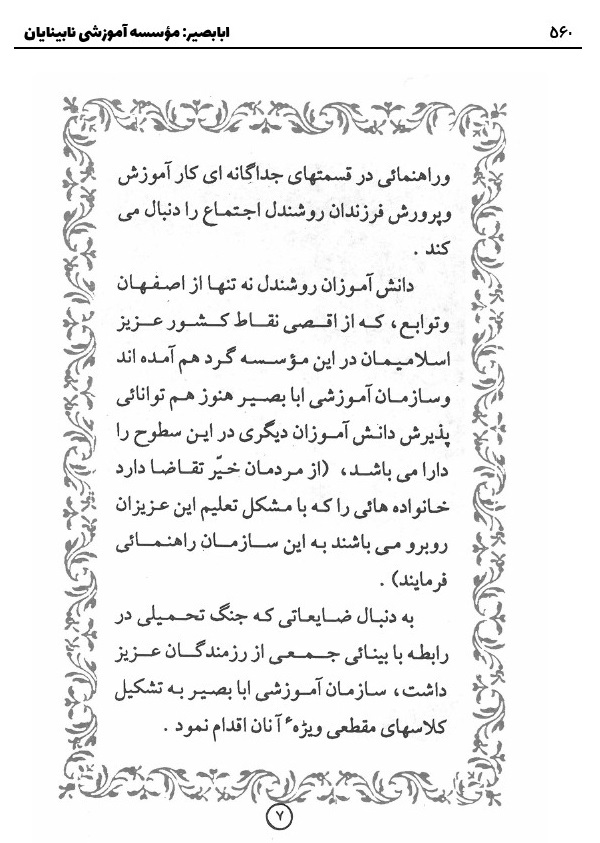 ۵۶۰ ابابصیر: مؤسسه آموزشی نابینایان
وراهنمائی در قسمتهای جداگانه ای کار آموزش
وپرورش فرزندان روشندل اجتماع را دنبال می
کند .
دانش آموزان روشندل نه تنها از اصفهان
وتوابع، که از اقصی نقاط کشور عزیز
اسلامیمان در این مؤسسه گرد هم آمده اند
وسازمان آموزشی ابا بصیر هنوز هم توانائی
پذیرش دانش آموزان دیگری در این سطوح را
دارا می باشد، (از مردمان خیّر تقاضا دارد
خانواده هائی را که با مشکل تعلیم این عزیزان
روبرو می باشند به این سازمان راهنمائی
فرمایند) .
به دنبال ضایعاتی که جنگ تحمیلی در
رابطه با بینائی جمعی از رزمندگان عزیز
داشت، سازمان آموزشی ابا بصیر به تشکیل
کلاسهای مقطعی ویژهٔ آنان اقدام نمود .
۷